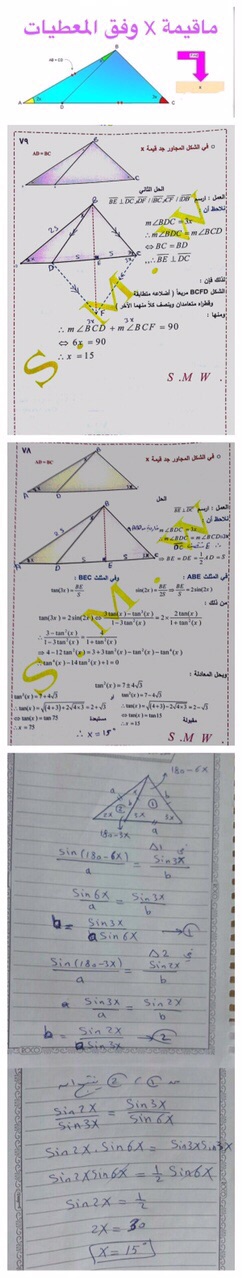 ماقيمة X وفق المعطيات
B
AB = CD
A
D
C
2x
3x
X
٧٩
○ في الشكل المجاور جد قيمة x
AB=BC
الحل الثاني
العمل : نرسم
نلاحظ أن
m∠BDC = 3x
∴ m∠BDC = m∠BCD
⇔ BC = BD
∴ BE ⊥ DC
لذلك فإن :
الشكل BCFD مربعاً ( أضلاعه متطابقة
وقطراه متعامدان وينصف كلاً منهما الآخر )
ومنها :
∴ m∠BCD + m∠BCF = 90
⇔ 6x = 90
∴ x = 15
S . M . W
S .M W .
٧٨
○ في الشكل المجاور جد قيمة x
AB=BC
الحل
العمل : نرسم BE ⊥ DC
نلاحظ أن
m∠BDC = 3x
∴ m∠BDC = m∠BCD=3x
⇒ BE = DE = ½ AD = S
في المثلث ABE : وفي المثلث BEC :
tan(3x) = BE/S sin(2x) = BE/2S ⇒ BE/S = 2sin(2x)
من ذلك :
tan(3x) = 2sin(2x) ⇔ 3tan(x) − tan³(x) / 1−3tan²(x) = 2× 2tan(x) / 1+tan²(x)
∴ 3−tan²(x) / 1−3tan²(x) = 4 / 1+tan²(x)
⇔ 4−12tan²(x) = 3+3tan²(x)−tan²(x)−tan⁴(x)
∴ tan⁴(x)−14tan²(x)+1=0
وبحل المعادلة :
tan²(x) = 7±4√3
tan²(x) = 7+4√3 أو tan²(x) = 7−4√3
∴ tan(x) = √(4+3)+2√4√3 = 2+√3 ∴ tan(x) = √(4+3)−2√4√3 = 2−√3
⇔ tan(x) = tan 75 ⇔ tan(x) = tan15
∴ x = 75 مستبعدة ∴ x = 15 مقبولة
∴ x = 15°
S . M . W
S .M W .
180-6X
180-3X
a
b
2X
3X
3X
a
Δ1 في
Sin(180-6X)/a = Sin3X/b
Sin6X/a = Sin3X/b
b = Sin3X / a Sin6X → ①
Δ2 في
Sin(180-3X)/a = Sin2X/b
Sin3X/a = Sin2X/b
b = Sin2X / a Sin3X → ②
من ① و ② ينتج أنه
Sin2X/Sin3X = Sin3X/Sin6X
Sin2X . Sin6X = Sin3X Sin3X
Sin2X Sin6X = ½ Sin6X
Sin2X = ½
2X = 30
X = 15°